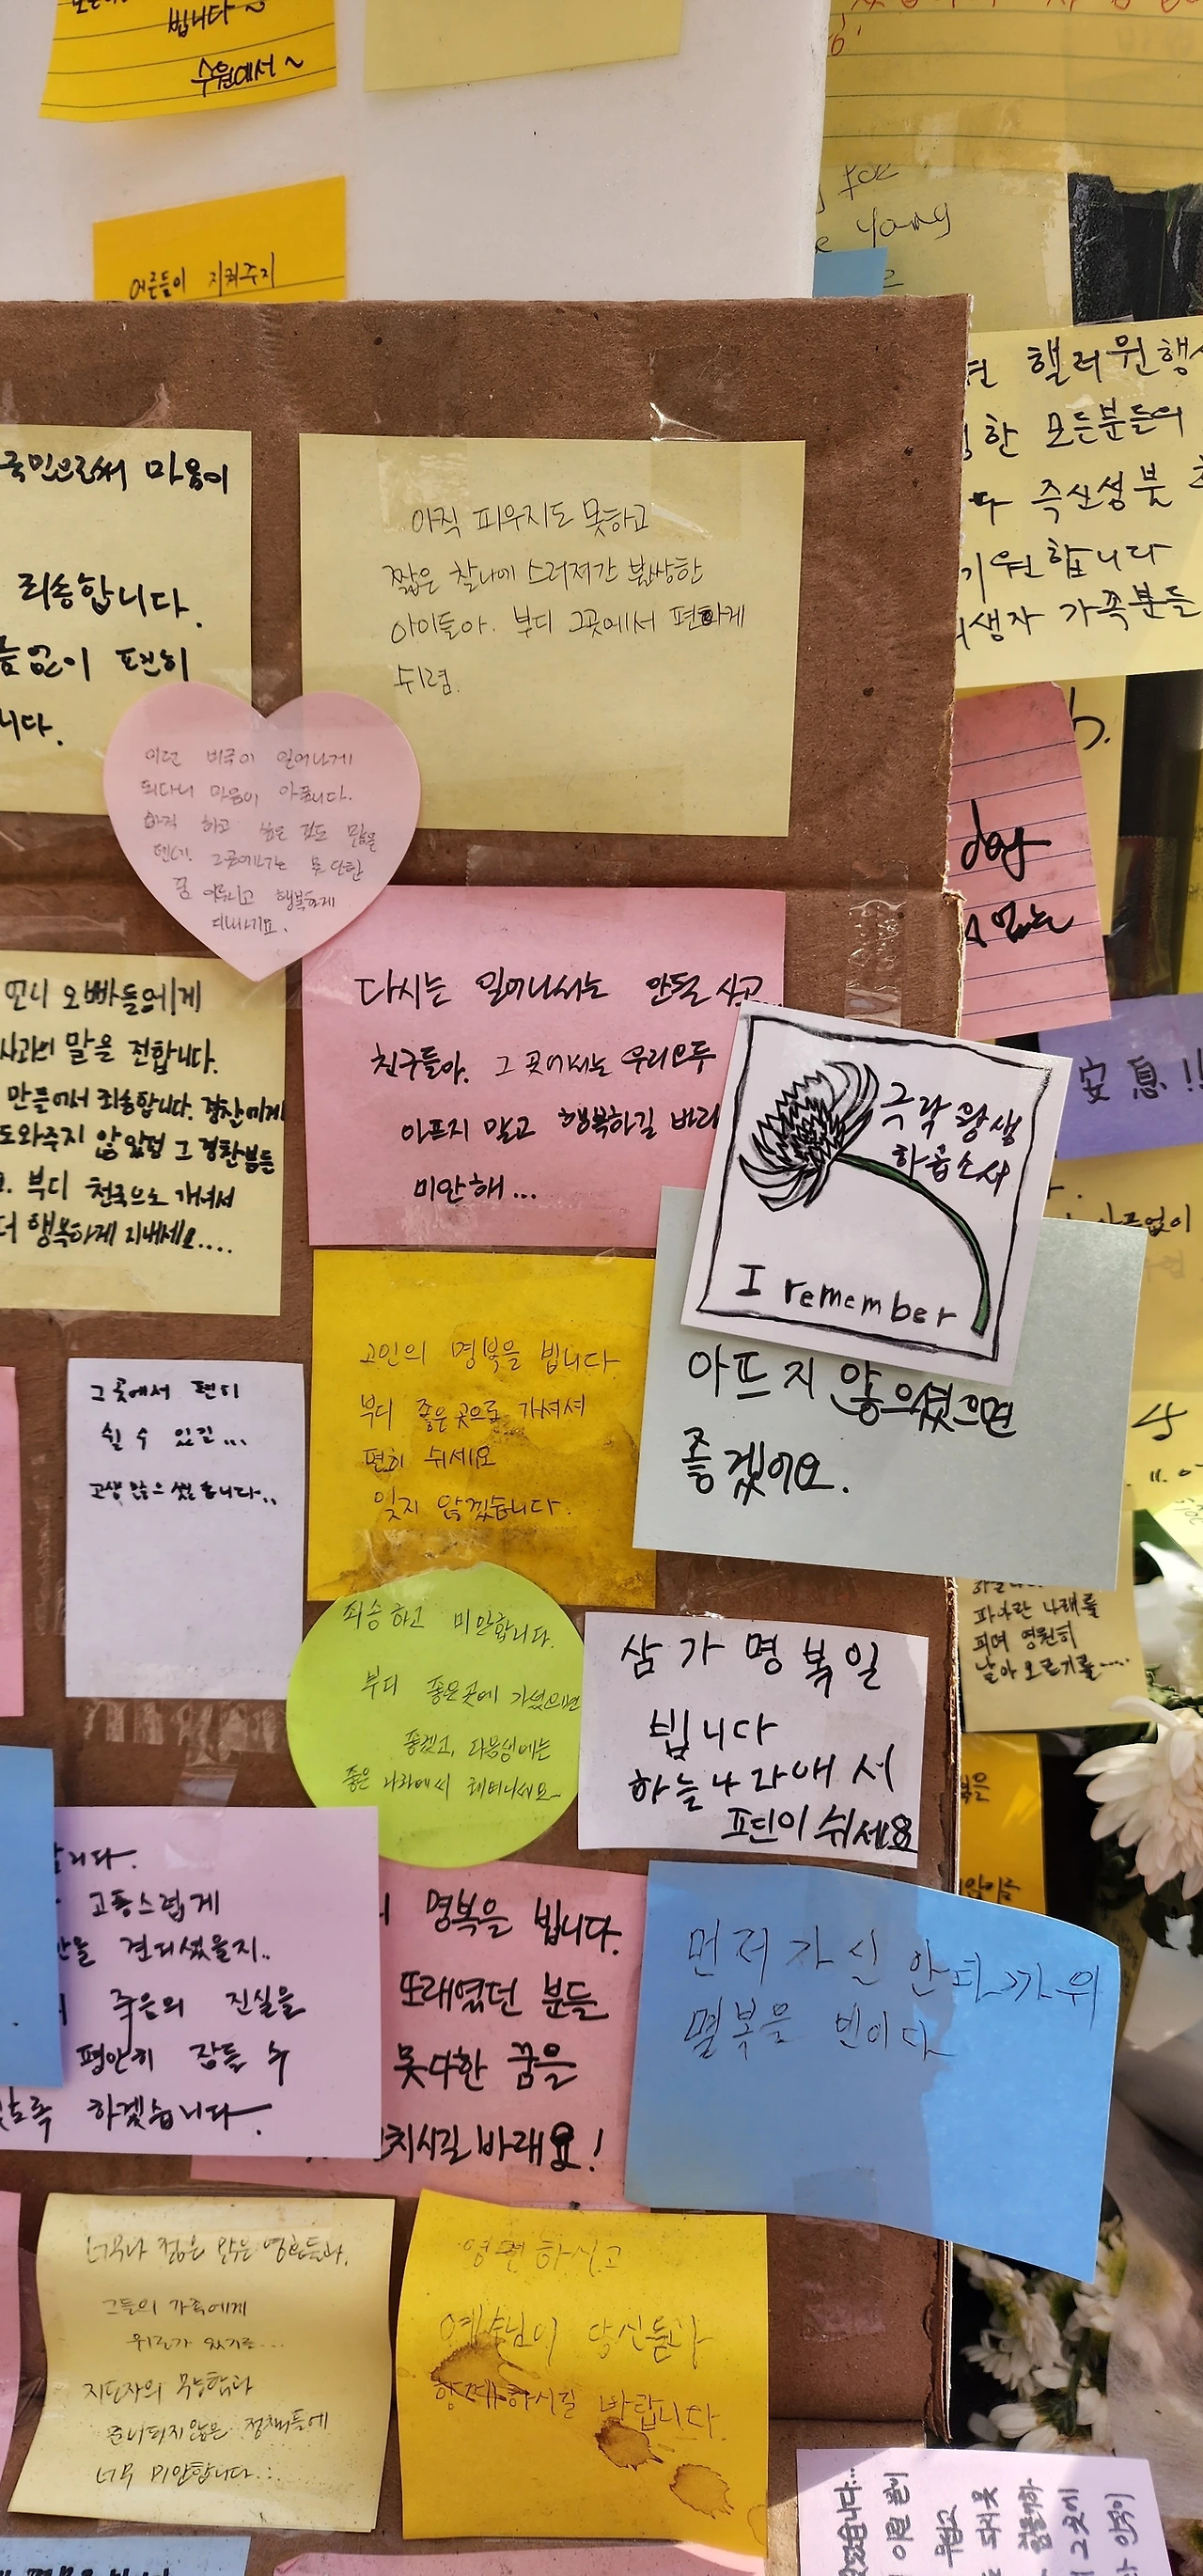 빕니다~
수원에서~
어른들이 지켜주지
for
young
핼러윈행
한 모든분들의
즉신성불
기원합니다
생자 가족분들
국민으로써 마음이
죄송합니다.
픔없이 편히
니다.
아직 피우지도 못하고
짧은 찰나에 스러져간 불쌍한
아이들아. 부디 그곳에서 편하게
쉬렴.
이런 비극이 일어나게
되다니 마음이 아픕니다.
아직 하고 싶은 것도 많을
텐데. 그곳에가는 못 다한
꿈 이루시고 행복하게
지내시길.
day
언니 오빠들에게
사과의 말을 전합니다.
만들어서 죄송합니다. 경찰에게
도와주지 않았던 그 경찰분들
부디 천국으로 가셔서
더 행복하게 지내세요....
다시는 일어나서는 안될 사고
친구들아. 그 곳에서는 우리모두
아프지 말고 행복하길 바라
미안해...
극락왕생
하옵소서
I remember
安息!!
그곳에서 편히
쉴 수 있길...
고생많으셨습니다..
고인의 명복을 빕니다.
부디 좋은곳으로 가셔서
편히 쉬세요
잊지 않겠습니다.
아프지 않으셨으면
좋겠어요.
파아란 나래를
피며 영원히
날아 오르기를....
죄송하고 미안합니다.
부디 좋은곳에 가셨으면
좋겠고, 다음생에는
좋은 나라에서 태어나세요
삼가명복일
빕니다
하늘나라애서
편이 쉬세요
고통스럽게
견디셨을지..
죽은의 진실을
평안히 잠들 수
있도록 하겠습니다.
명복을 빕니다.
또래였던 분들
못다한 꿈을
치시길 바래요!
먼저가신 안타까위
명복을 빈이다
너무나 젊은 영혼들과,
그들의 가족에게
위로가 있기를...
지도자의 무능함과
준비되지않은 정책들에
너무 미안합니다...
영면하시고
예수님이 당신들과
함께하시길 바랍니다